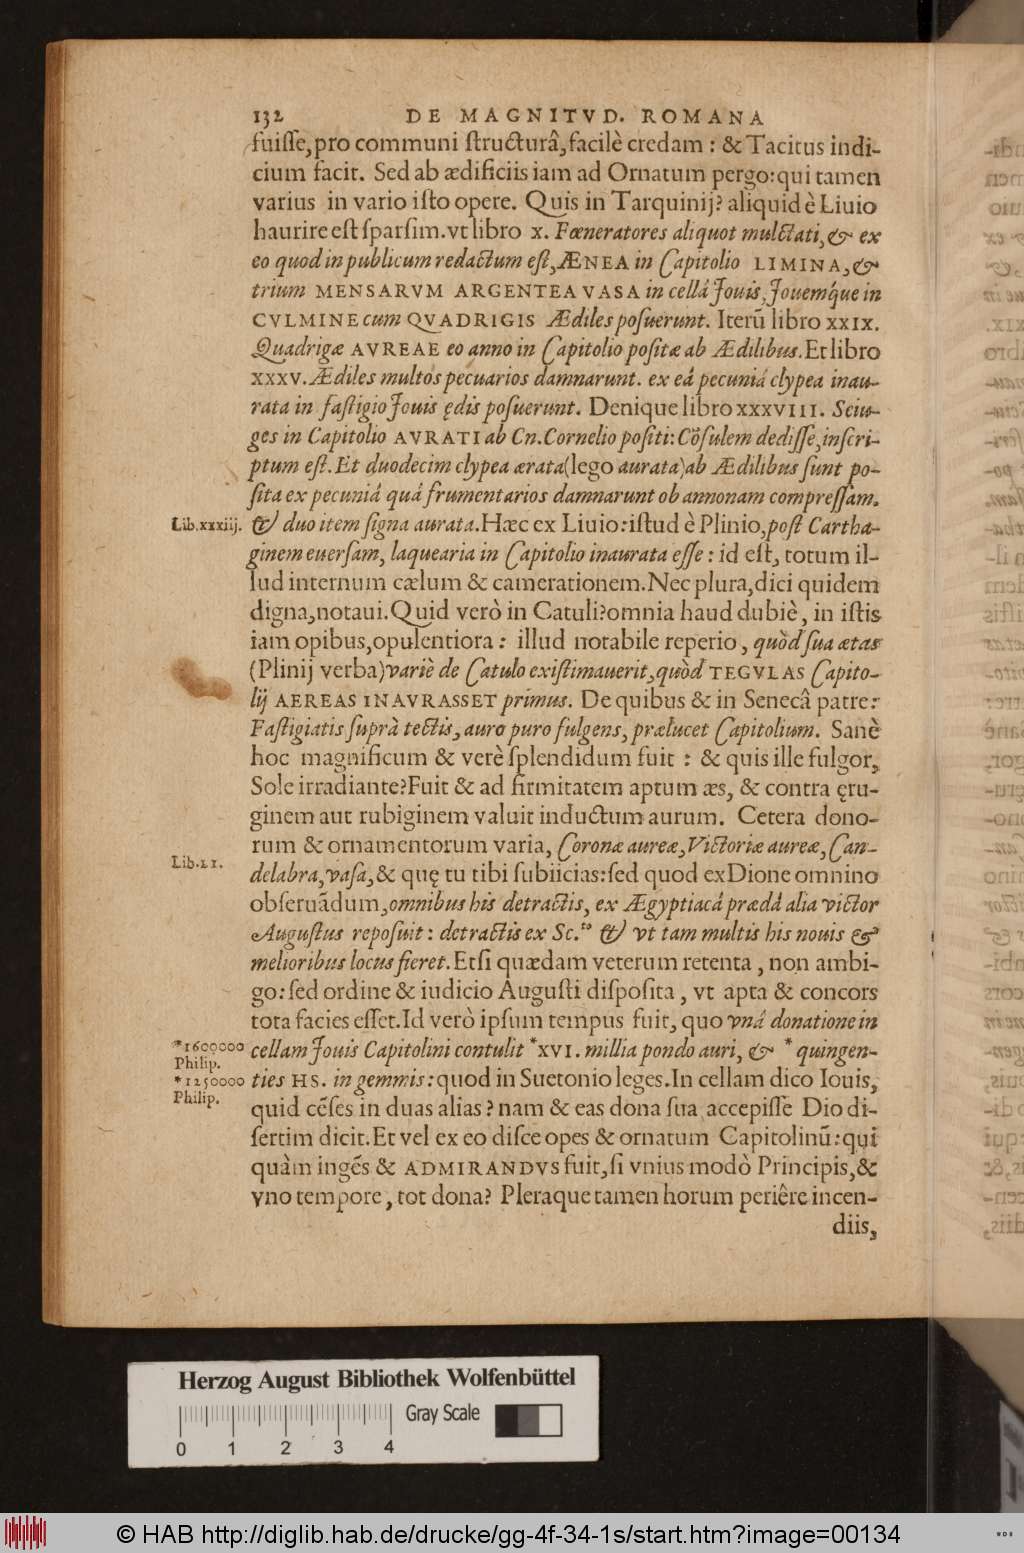 132 DE MAGNITVD. ROMANA
fuiſſe, pro communi ſtructurâ, facilè credam : & Tacitus indi-
cium facit. Sed ab ædificiis iam ad Ornatum pergo: qui tamen
varius in vario iſto opere. Quis in Tarquinij? aliquid è Liuio
haurire eſt ſparſim. vt libro x. Fœneratores aliquot mulctati, & ex
eo quod in publicum redactum eſt, ÆNEA in Capitolio LIMINA, &
trium MENSARVM ARGENTEA VASA in cellâ Jouis, Jouemq́ue in
CVLMINE cum QVADRIGIS Ædiles poſuerunt. Iterũ libro XXIX.
Quadrigæ AVREAE eo anno in Capitolio poſitæ ab Ædilibus. Et libro
XXXV. Ædiles multos pecuarios damnarunt. ex eâ pecuniâ clypea inau-
rata in faſtigio Jouis ędis poſuerunt. Denique libro XXXVIII. Seiu-
ges in Capitolio AVRATI ab Cn. Cornelio poſiti: Cõſulem dediſſe, inſcri-
ptum eſt. Et duodecim clypea ærata (lego aurata) ab Ædilibus ſunt po-
ſita ex pecuniâ quâ frumentarios damnarunt ob annonam compreſſam.
Lib.xxxiij. & duo item ſigna aurata. Hæc ex Liuio: iſtud è Plinio, poſt Cartha-
ginem euerſam, laquearia in Capitolio inaurata eſſe : id eſt, totum il-
lud internum cælum & camerationem. Nec plura, dici quidem
digna, notaui. Quid verò in Catuli? omnia haud dubiè, in iſtis
iam opibus, opulentiora : illud notabile reperio, quòd ſua ætas
(Plinij verba) variè de Catulo exiſtimauerit, quòd TEGVLAS Capito-
lij AEREAS INAVRASSET primus. De quibus & in Senecâ patre:
Faſtigiatis ſuprà tectis, auro puro fulgens, prælucet Capitolium. Sanè
hoc magnificum & verè ſplendidum fuit : & quis ille fulgor,
Sole irradiante? Fuit & ad firmitatem aptum æs, & contra ęru-
ginem aut rubiginem valuit inductum aurum. Cetera dono-
rum & ornamentorum varia, Coronæ aureæ, Victoriæ aureæ, Can-
Lib.LI.
delabra, vaſa, & quę tu tibi ſubiicias: ſed quod ex Dione omnino
obſeruãdum, omnibus his detractis, ex Ægyptiacâ prædâ alia victor
Auguſtus repoſuit : detractis ex Sc.to & vt tam multis his nouis &
melioribus locus fieret. Etſi quædam veterum retenta, non ambi-
go: ſed ordine & iudicio Auguſti diſpoſita, vt apta & concors
tota facies eſſet. Id verò ipſum tempus fuit, quo vnâ donatione in
*1600000 cellam Jouis Capitolini contulit *XVI. millia pondo auri, & * quingen-
Philip.
*1250000 ties HS. in gemmis: quod in Suetonio leges. In cellam dico Iouis,
Philip. quid cẽſes in duas alias? nam & eas dona ſua accepiſſe Dio di-
ſertim dicit. Et vel ex eo diſce opes & ornatum Capitolinũ: qui
quàm ingẽs & ADMIRANDVS fuit, ſi vnius modò Principis, &
vno tempore, tot dona? Pleraque tamen horum periêre incen-
diis,
Herzog August Bibliothek Wolfenbüttel
Gray Scale
0 1 2 3 4
© HAB http://diglib.hab.de/drucke/gg-4f-34-1s/start.htm?image=00134